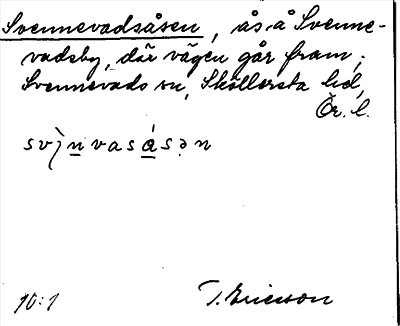 Svennevadsåsen, ås å Svenne-
vadsby, där vägen går fram,
Svennevads sn, Sköllersta hd,
Ör. l.
svìnvasásən
10:1 T. Ericson